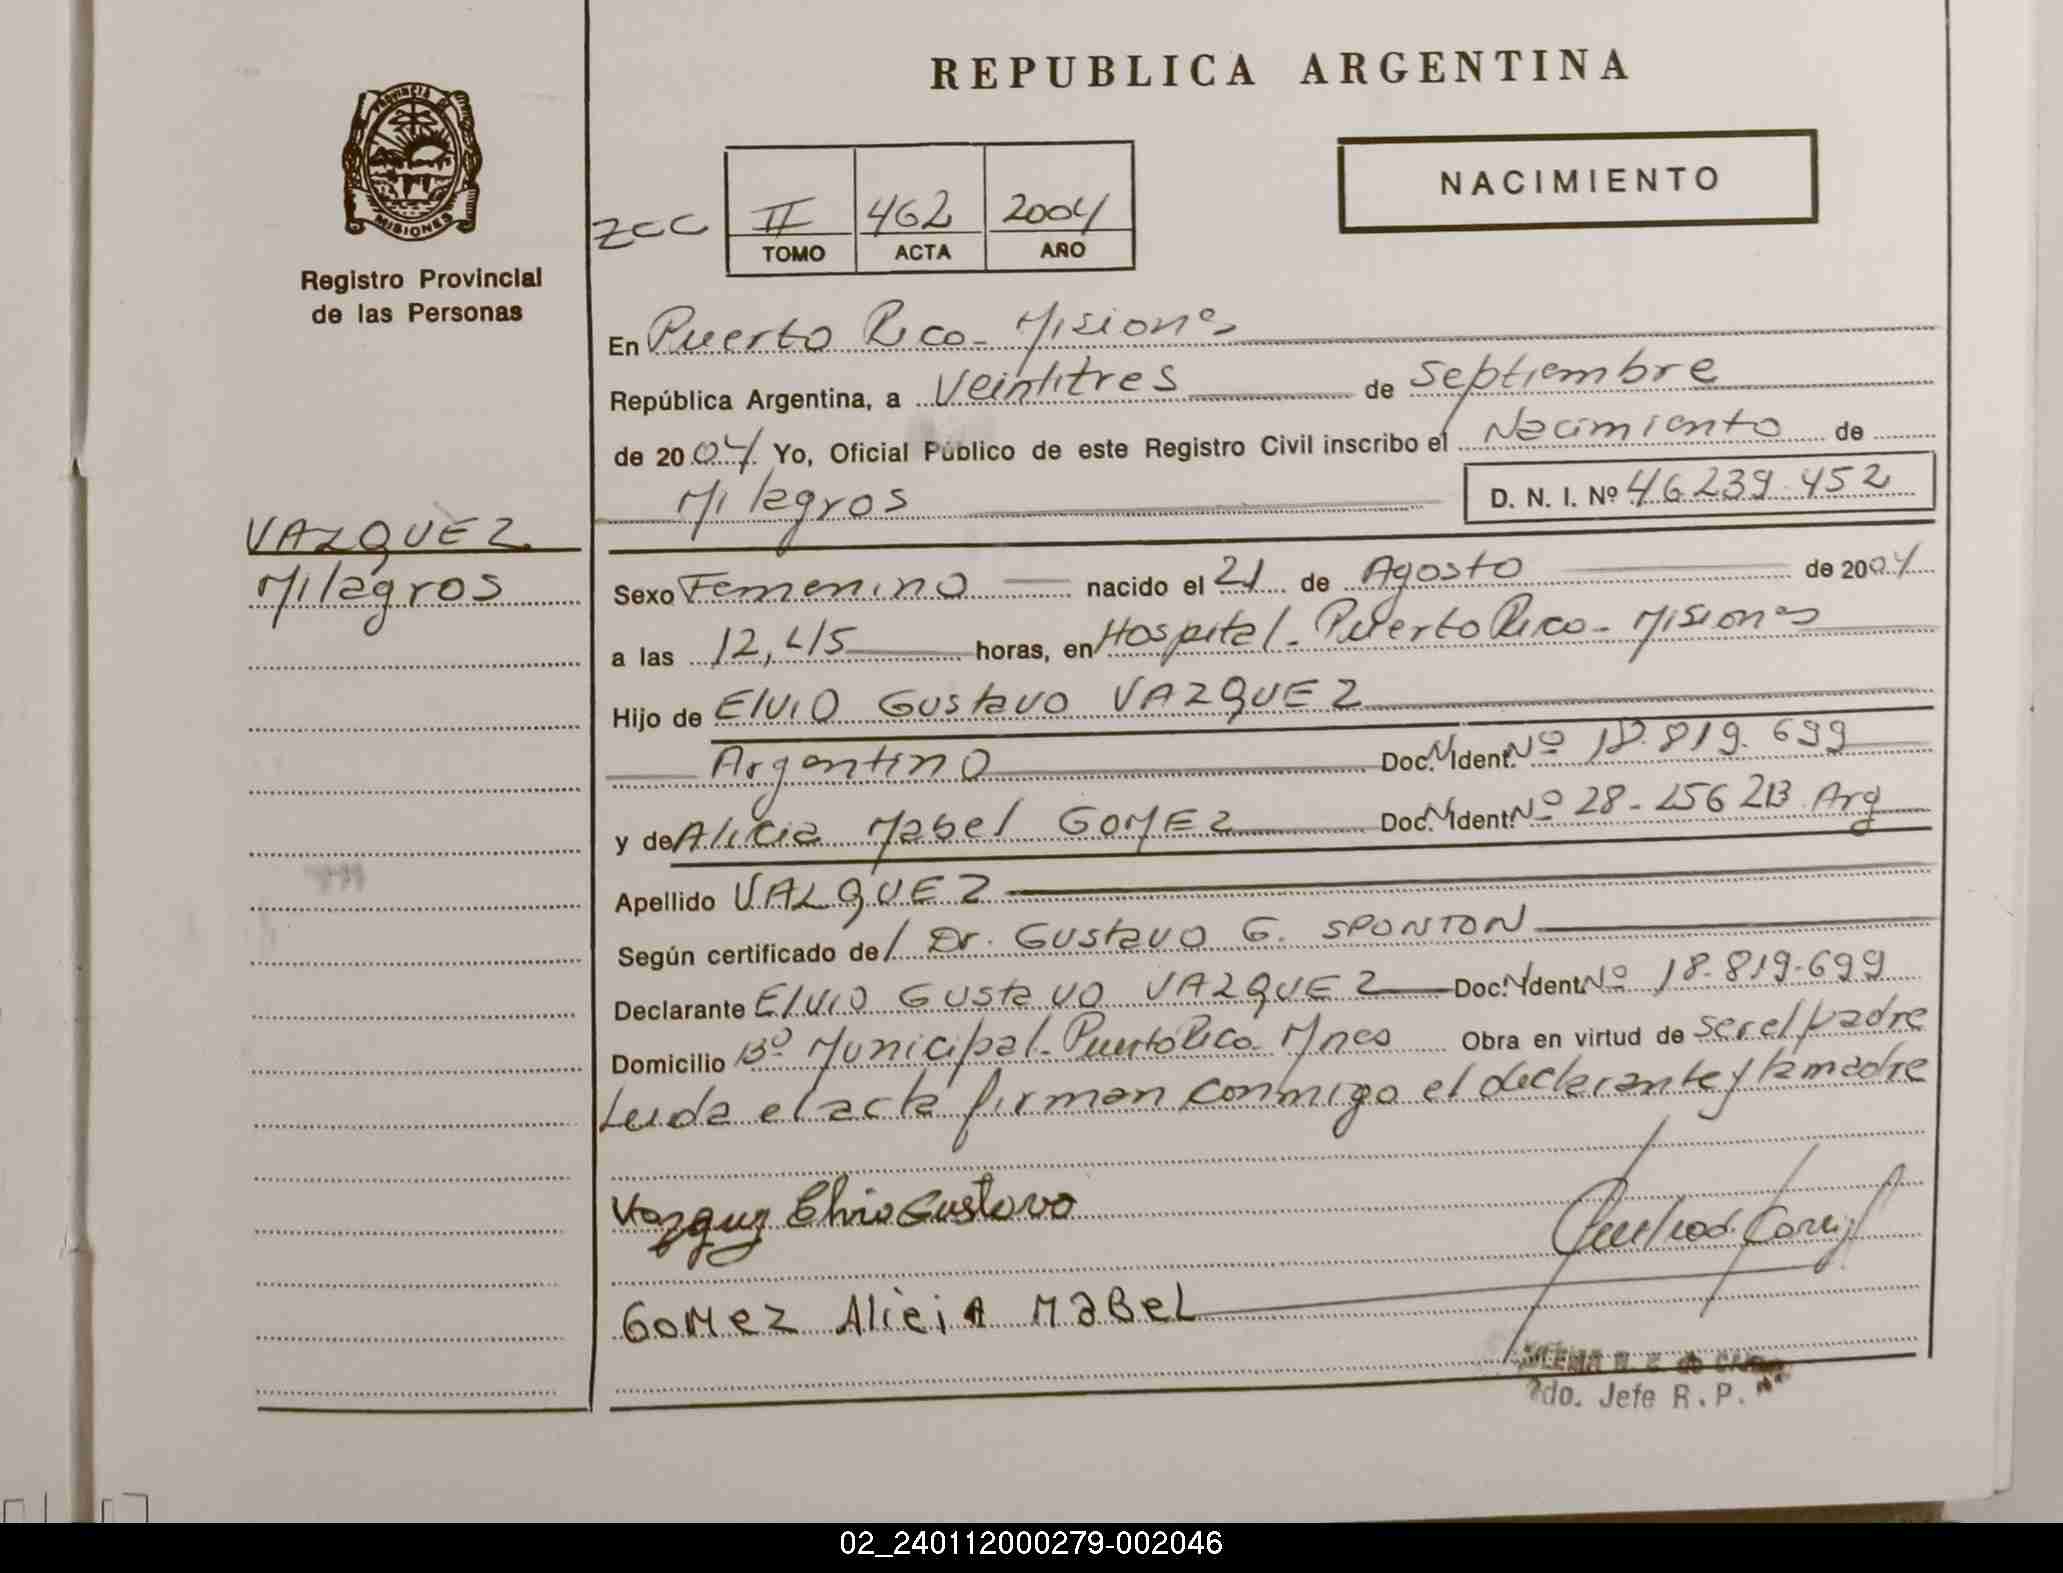 REPUBLICA ARGENTINA
PROVINCIA DE
MISIONES
Registro Provincial
de las Personas
NACIMIENTO
ZCC II 462 2004
TOMO ACTA AÑO
En Puerto Rico - Misiones
República Argentina, a Veintitres de Septiembre
de 2004 Yo, Oficial Público de este Registro Civil inscribo el Nacimiento de
Milagros D. N. I. Nº 46.239.452
VAZQUEZ
Milagros
Sexo Femenino nacido el 21 de Agosto de 2004
a las 12,45 horas, en Hospital - Puerto Rico - Misiones
Hijo de Elvio Gustavo VAZQUEZ
Argentino Doc. N. Ident. Nº 18.819.699
y de Alicia Mabel GOMEZ Doc. N. Ident. Nº 28.256.213 Arg
Apellido VAZQUEZ
Según certificado del Dr. Gustavo G. SPONTON
Declarante Elvio Gustavo VAZQUEZ Doc. N. Ident. Nº 18.819.699
Domicilio Bº Municipal - Puerto Rico Mnes Obra en virtud de ser el padre
Leida el acta firman conmigo el declarante y la madre
Vazquez Elvio Gustavo
GOMez AliciA MaBeL
2do. Jefe R. P.
02_240112000279-002046